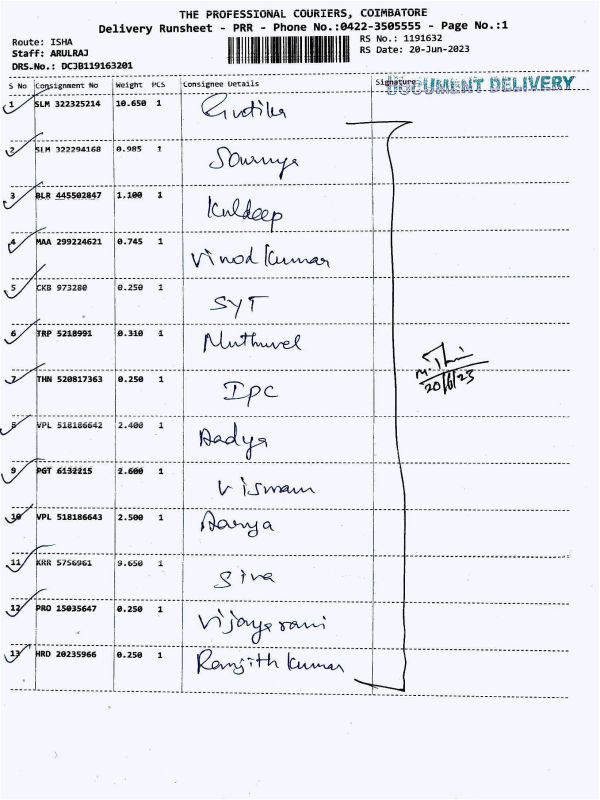 THE PROFESSIONAL COURIERS, COIMBATORE
Delivery Runsheet - PRR - Phone No.:0422-3505555 - Page No.:1
Route: ISHA
Staff: ARULRAJ
DRS-No.: DCJB119163201
RS No.: 1191632
RS Date: 20-Jun-2023
S No Consignment No Weight PCS Consignee Details Signature
DOCUMENT DELIVERY
1 SLM 322325214 10.650 1
2 SLM 322294168 0.985 1 Soumya
3 BLR 445502847 1.100 1 Kuldeep
4 MAA 299224621 0.745 1 Vinod Kumar
5 CKB 973280 0.250 1 SYT
6 TRP 5218991 0.310 1 Muthuvel
7 THN 520817363 0.250 1 IPC
20/6/23
8 VPL 518186642 2.400 1 Aadya
9 PGT 6132215 2.600 1 Vismam
10 VPL 518186643 2.500 1 Aarya
11 KRR 5756961 9.650 1 Siva
12 PRO 15035647 0.250 1 Vijayarani
13 HRD 20235966 0.250 1 Ranjith Kumar